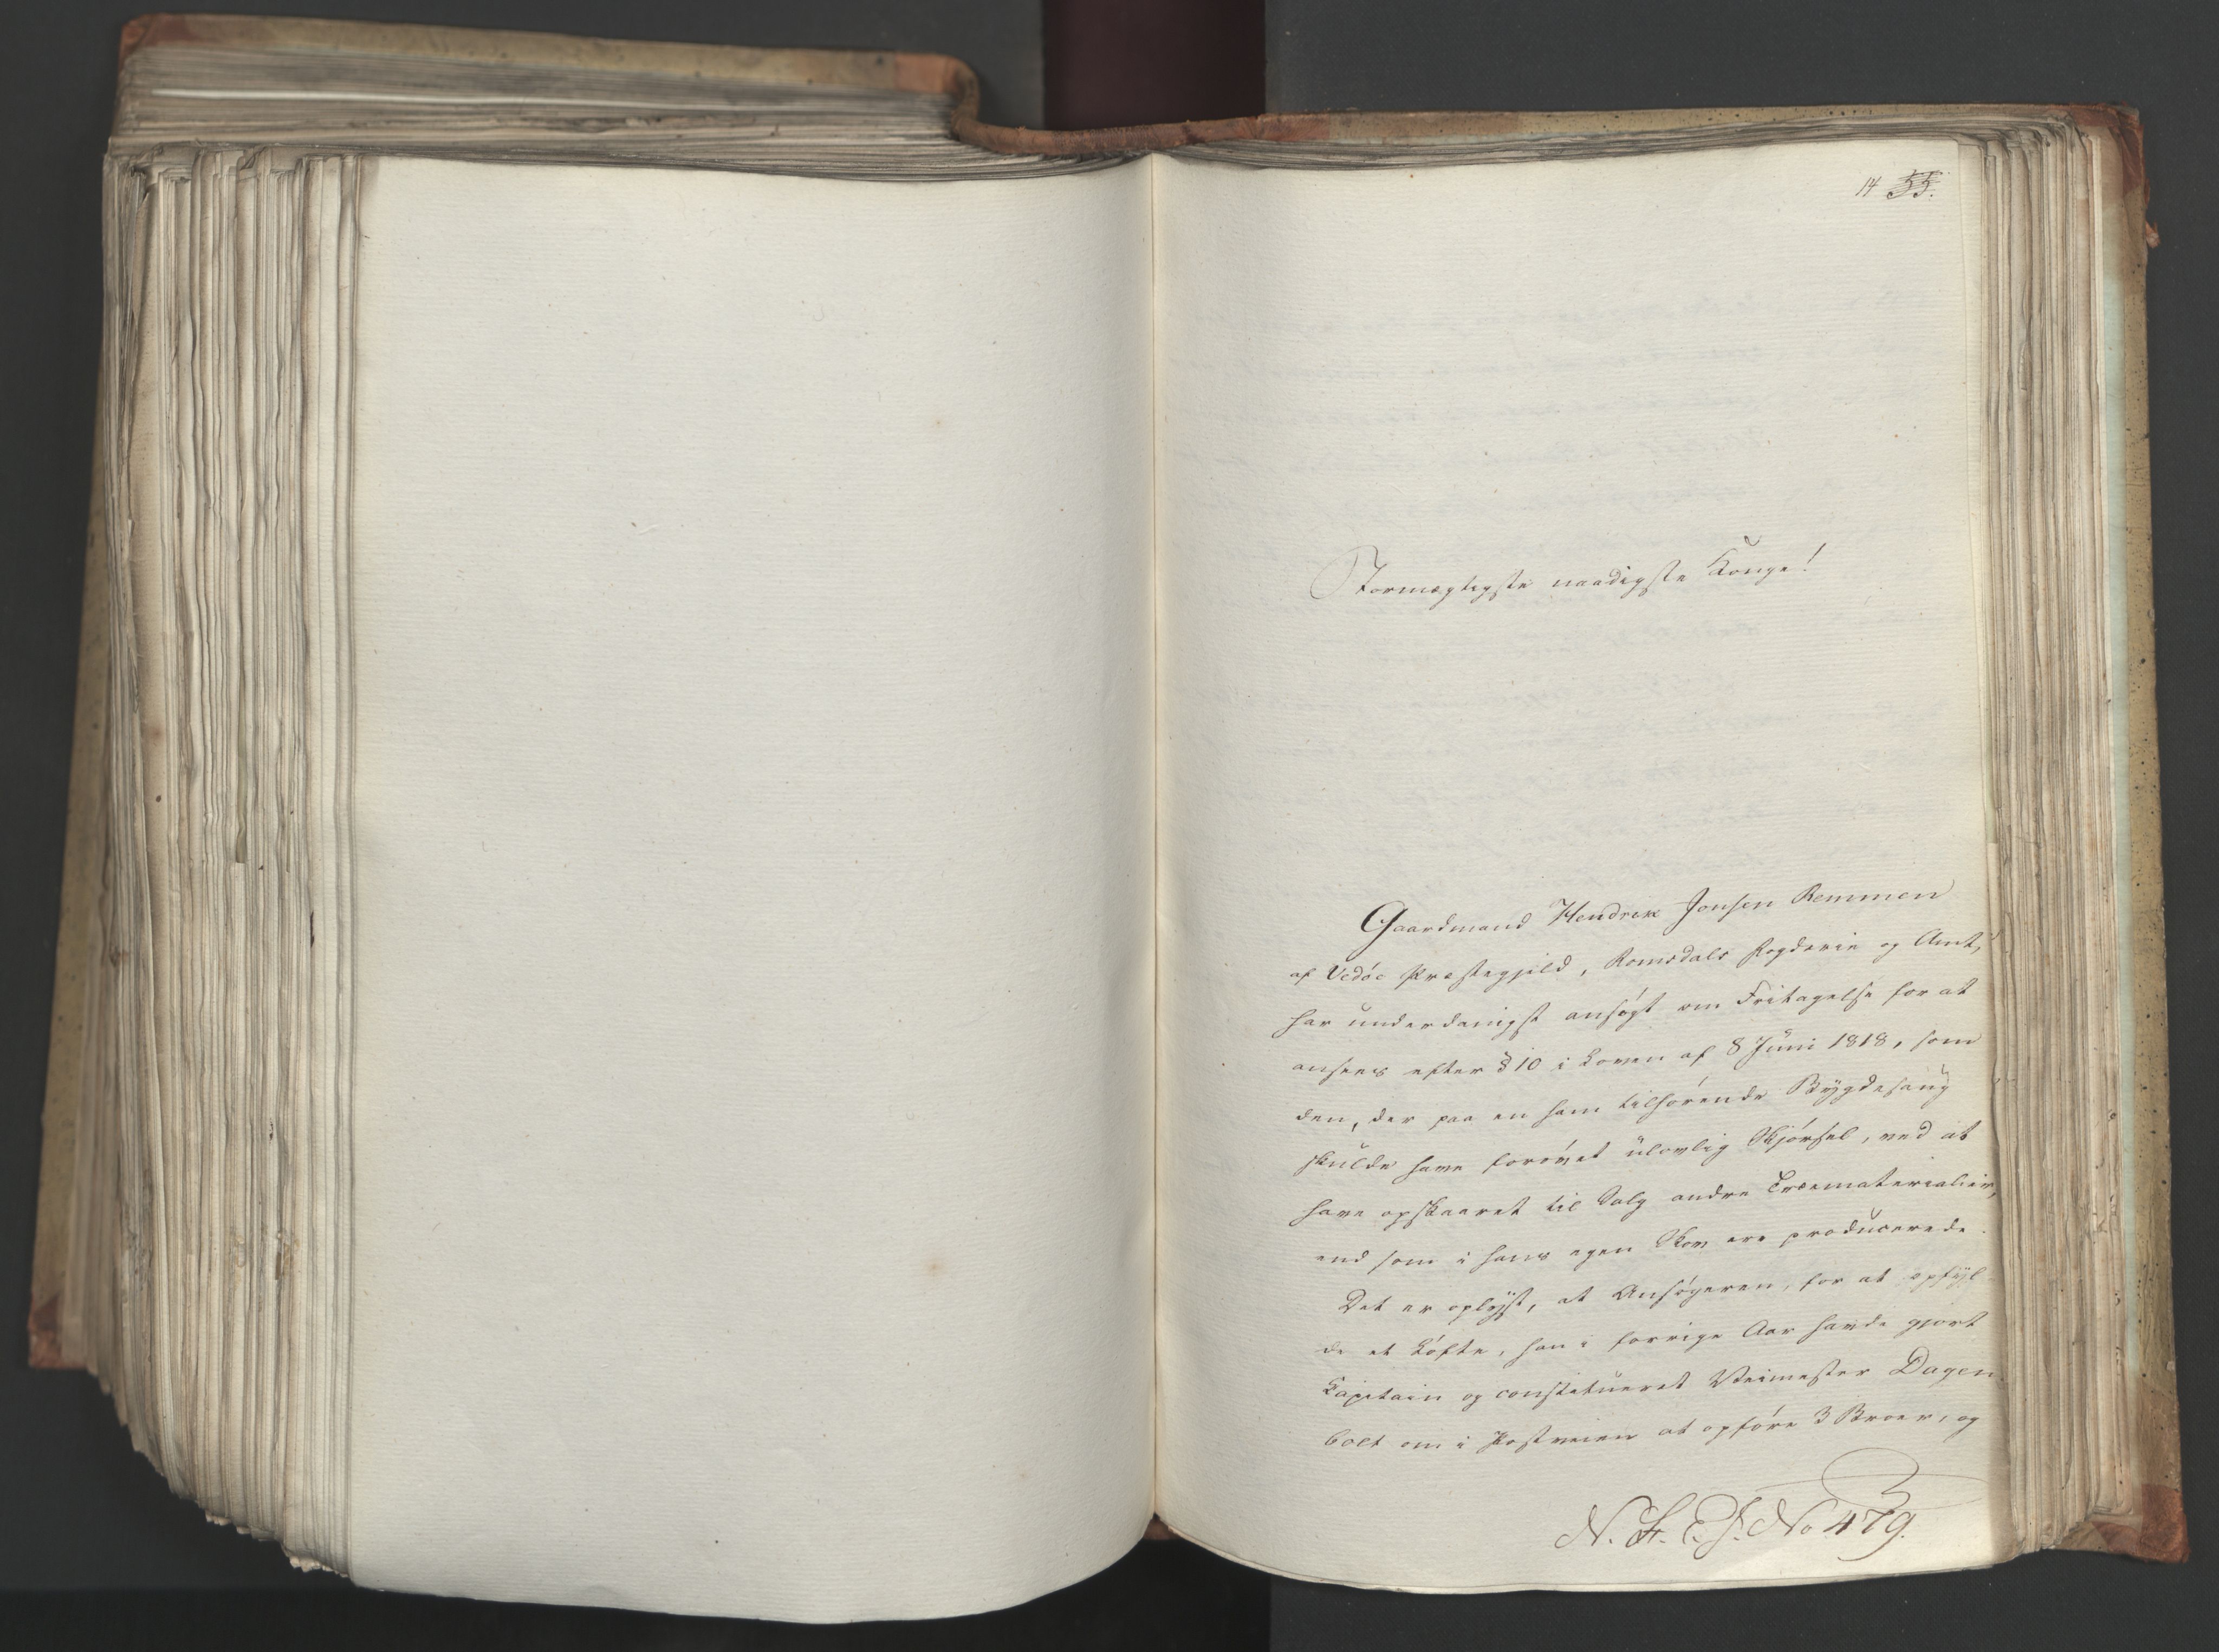 14 55.
Stormægtigste naadigste Konge!
Gaardmand Hendrik Jonsen Remmen
af Vedøe Præstegjæld, Romsdals Fogderie og Amt,
har underdanigst ansøgt om Fritagelse for at
ansees efter § 10 i Loven af 8 Juni 1818, som
den, der paa en ham tilhørende Bygdesaug
skulde have forøvet ulovlig Skjørsel, ved at
have opskaaret til Salg andre Træmaterialier,
end som i hans egen Skov ere producerede.
Det er oplyst, at Ansøgeren, for at opfyl
de et Løfte, han i forrige Aar havde gjort
Kapitain og constitueret Veimester Dagen
bolt om i Postveien at opføre 3 Broer, og
No 479.